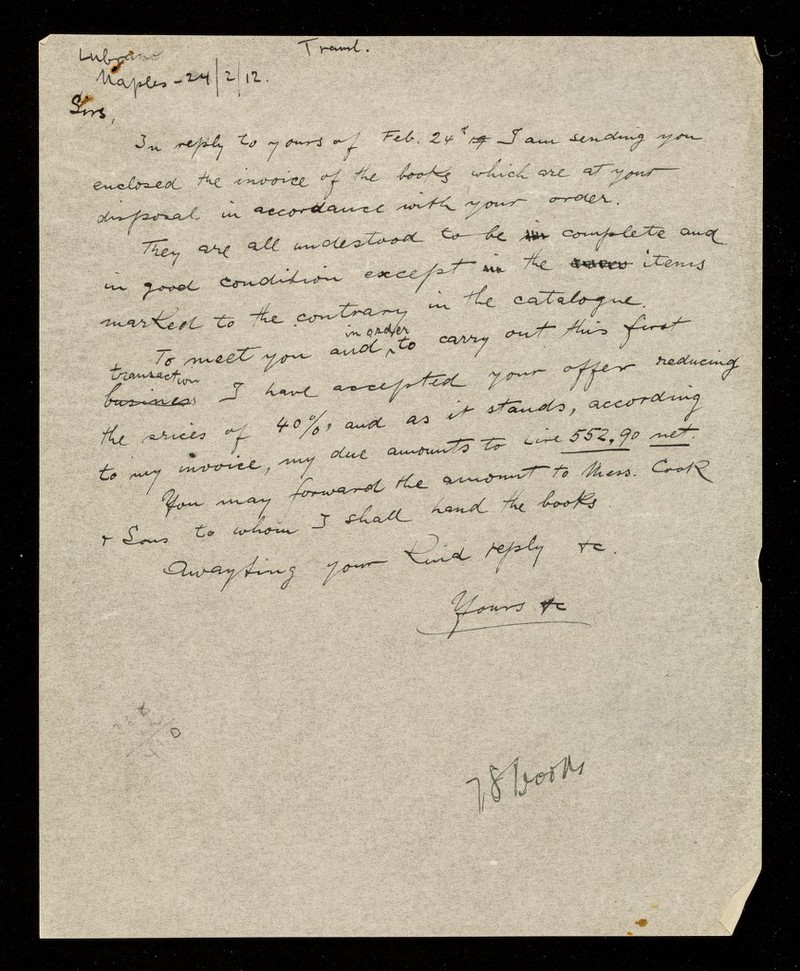 Lubrano Transl.
Naples - 24/2/12.
Sirs,
In reply to yours of Feb. 24th I am sending you
enclosed the invoice of the books which are at your
disposal in accordance with your order.
They are all undestood to be in complete and
in good condition except in the items
marked to the contrary in the catalogue.
To meet you and in order to carry out this first
transaction
business I have accepted your offer reducing
the prices of 40%, and as it stands, according
to my invoice, my due amounts to Lire 552,90 net.
You may forward the amount to Mess. Cook
& Sons to whom I shall hand the books
Awayting your kind reply &c.
Yours &c
78 books